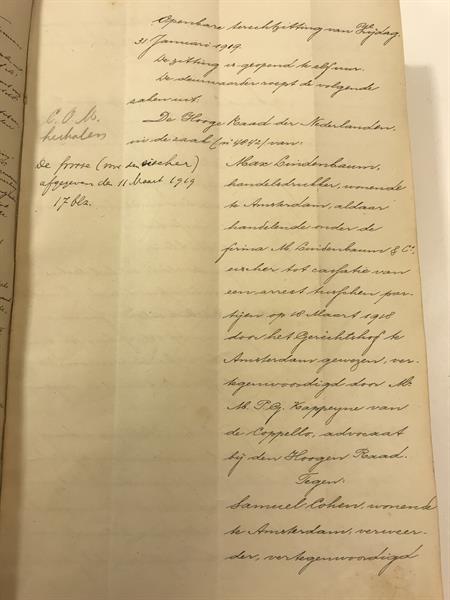 Openbare terechtzitting van Vrijdag
31 Januari 1919.
De zitting is geopend te elf uur.
De deurwaarder roept de volgende
zaken uit.
De Hooge Raad der Nederlanden,
in de zaak (n° 4692) van:
C. O. M.
herhalen
De grosse (voor den eischer)
afgegeven den 11 Maart 1919
17 blz.
Max Lindenbaum,
handelsdrukker, wonende
te Amsterdam, aldaar
handelende onder de
firma M. Lindenbaum & C°,
eischer tot cassatie van
een arrest tusschen par-
tijen op 18 Maart 1918
door het Gerechtshof te
Amsterdam gewezen, ver-
tegenwoordigd door Mr.
M. P. G. Kappeyne van
de Coppello, advocaat
bij den Hoogen Raad.
Tegen:
Samuel Cohen, wonende
te Amsterdam, verweer-
der, vertegenwoordigd